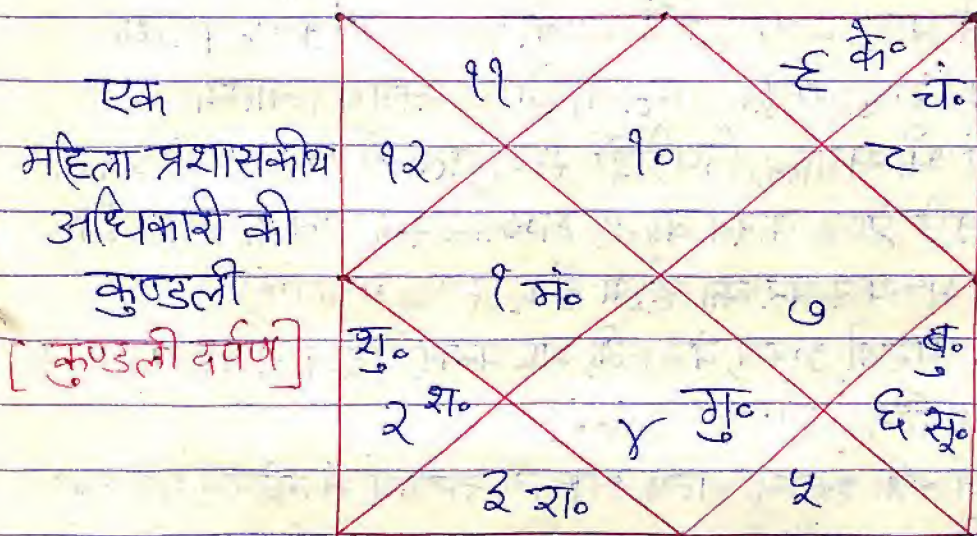 एक
महिला प्रशासकीय
अधिकारी की
कुण्डली
[ कुण्डली दर्पण ]
११
९ के॰
चं॰
१२
१०
८
१ मं॰
७
शु॰
बु॰
२ श॰
४ गु॰
६ सू॰
३ रा॰
५